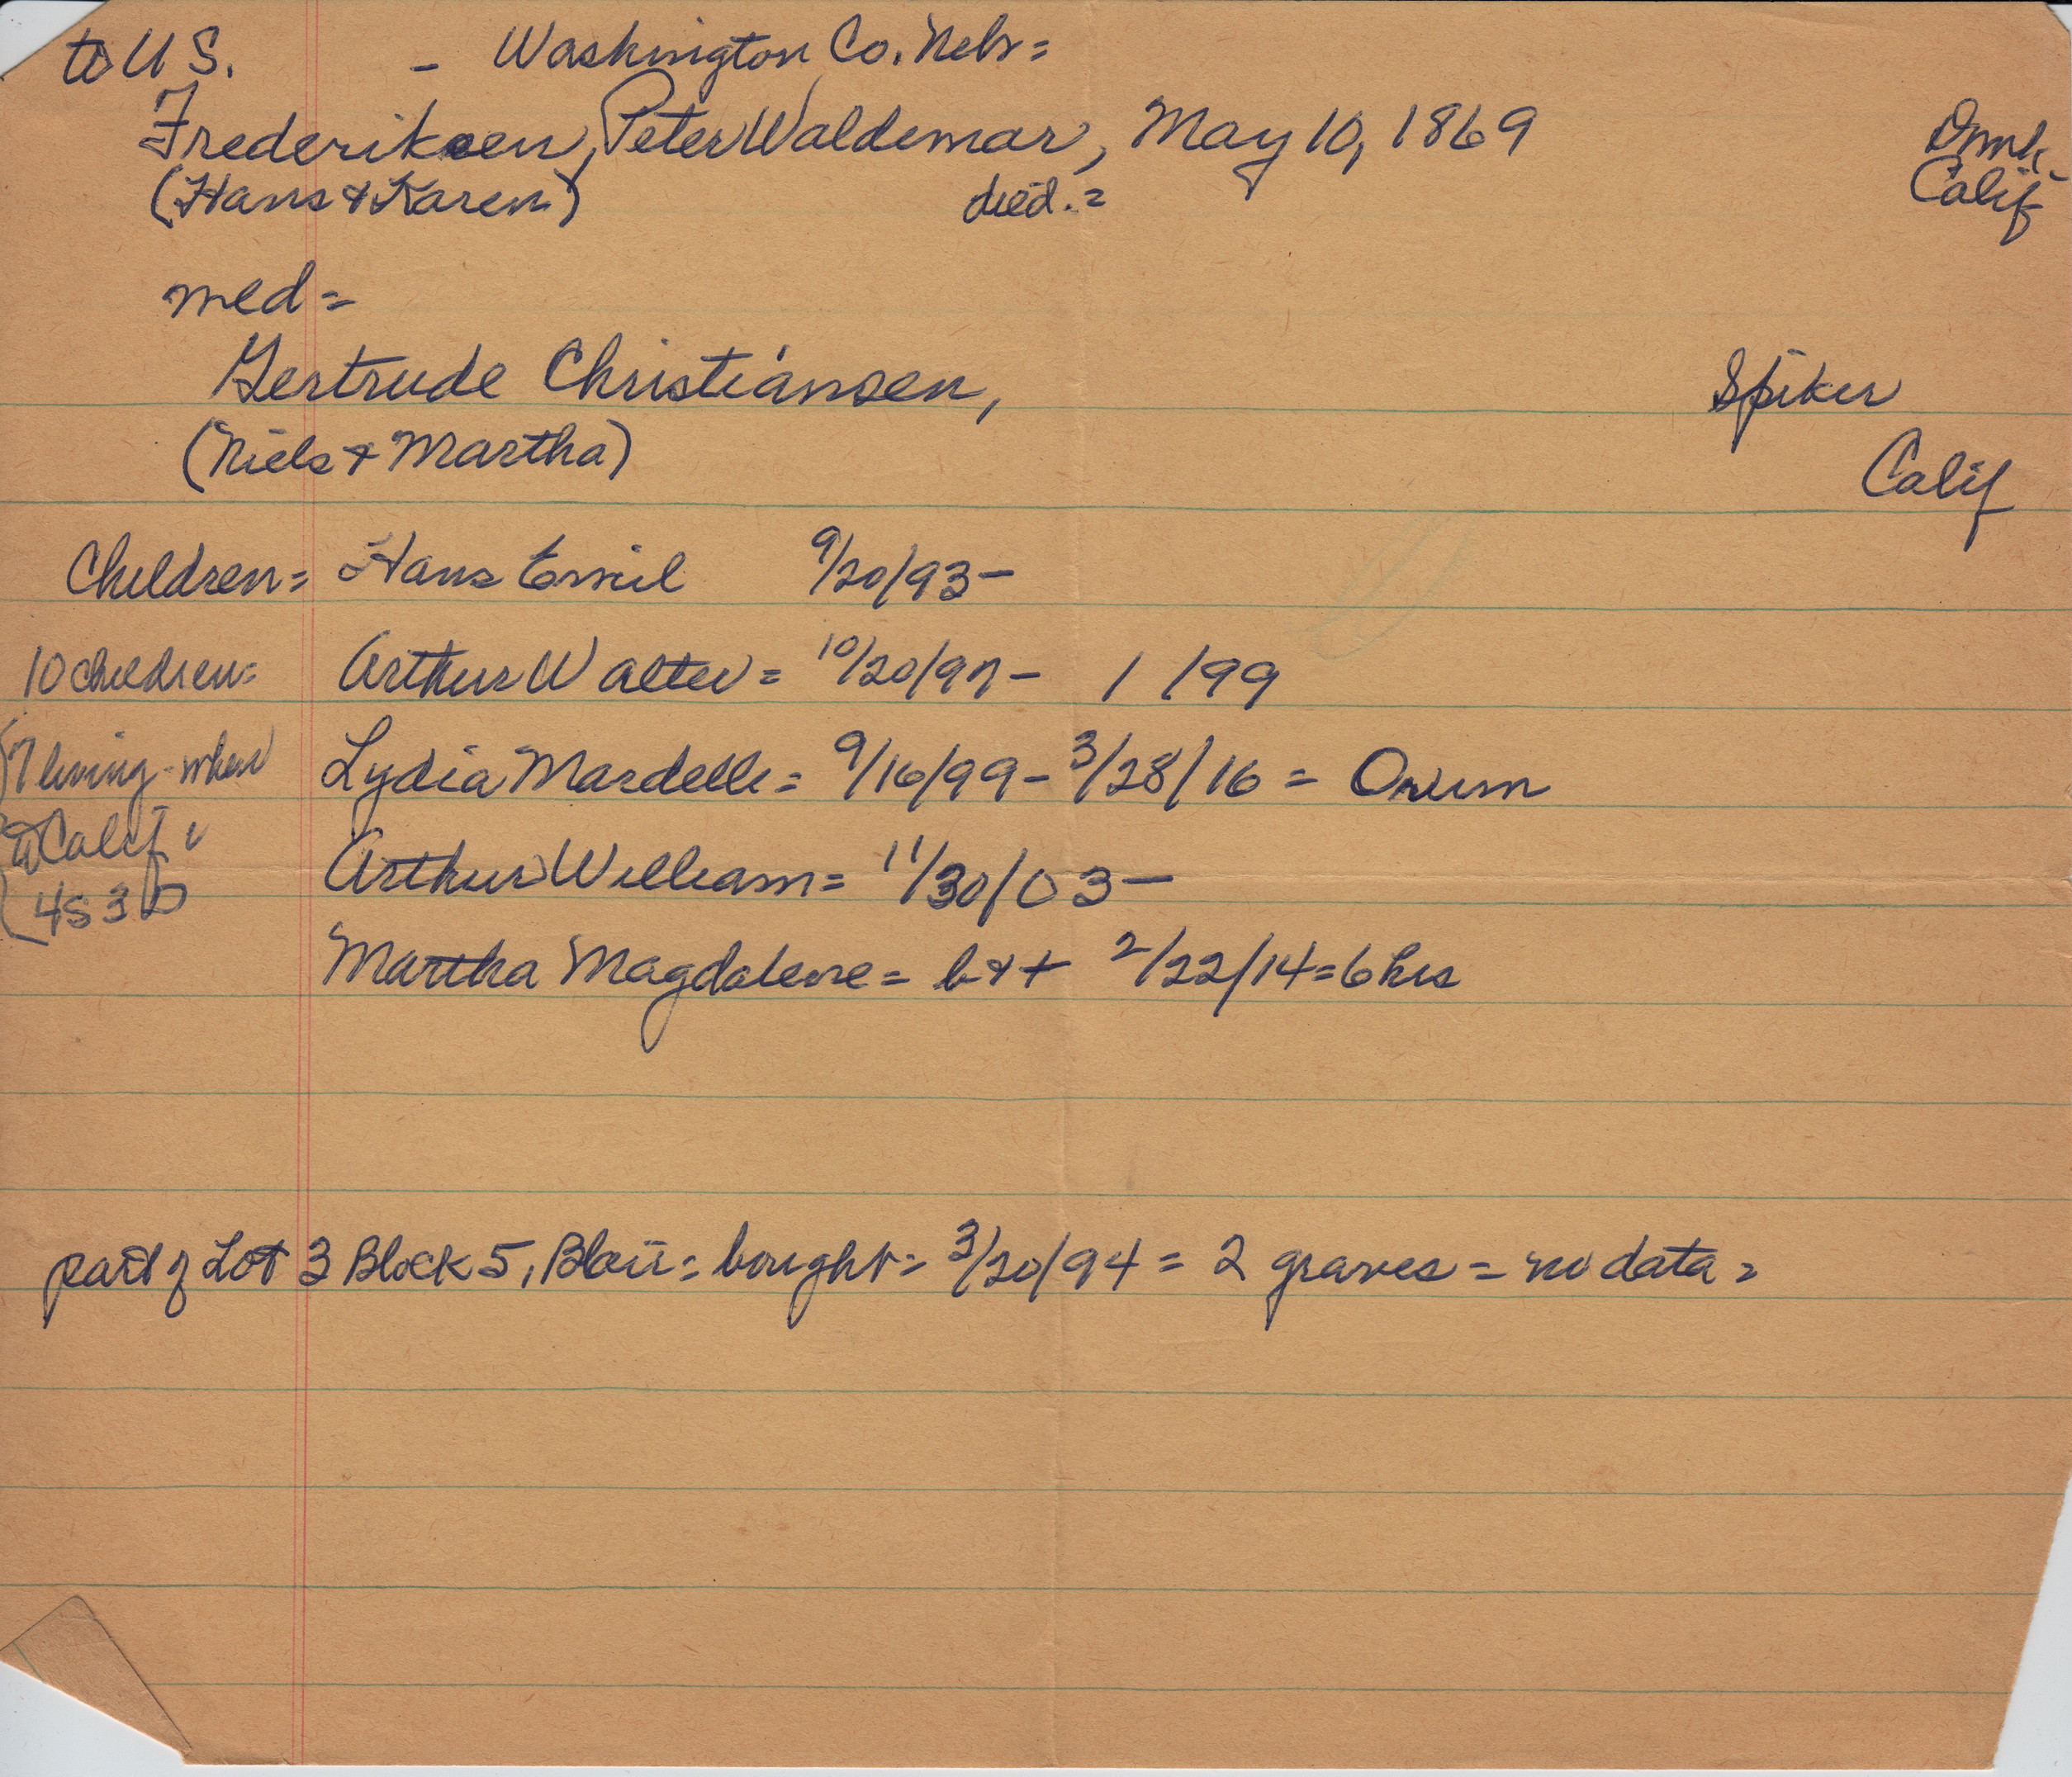 to U S. - Washington Co. Nebr=
Frederiksen, Peter Waldemar, May 10, 1869 Dmk.
(Hans & Karen) died.= Calif
med=
Gertrude Christiansen, Spiker
(Niels & Martha) Calif
Children= Hans Emil 9/20/93-
10 children= Arthur Walter= 10/20/97- 1 /99
(7 living when Lydia Mardelle= 9/16/99-3/28/16= Orum
to Calif
Arthur William= 11/30/03-
(4S 3D
Martha Magdalene= b & + 2/22/14=6hrs
part of Lot 3 Block 5, Blair= bought= 3/20/94= 2 graves= no data=